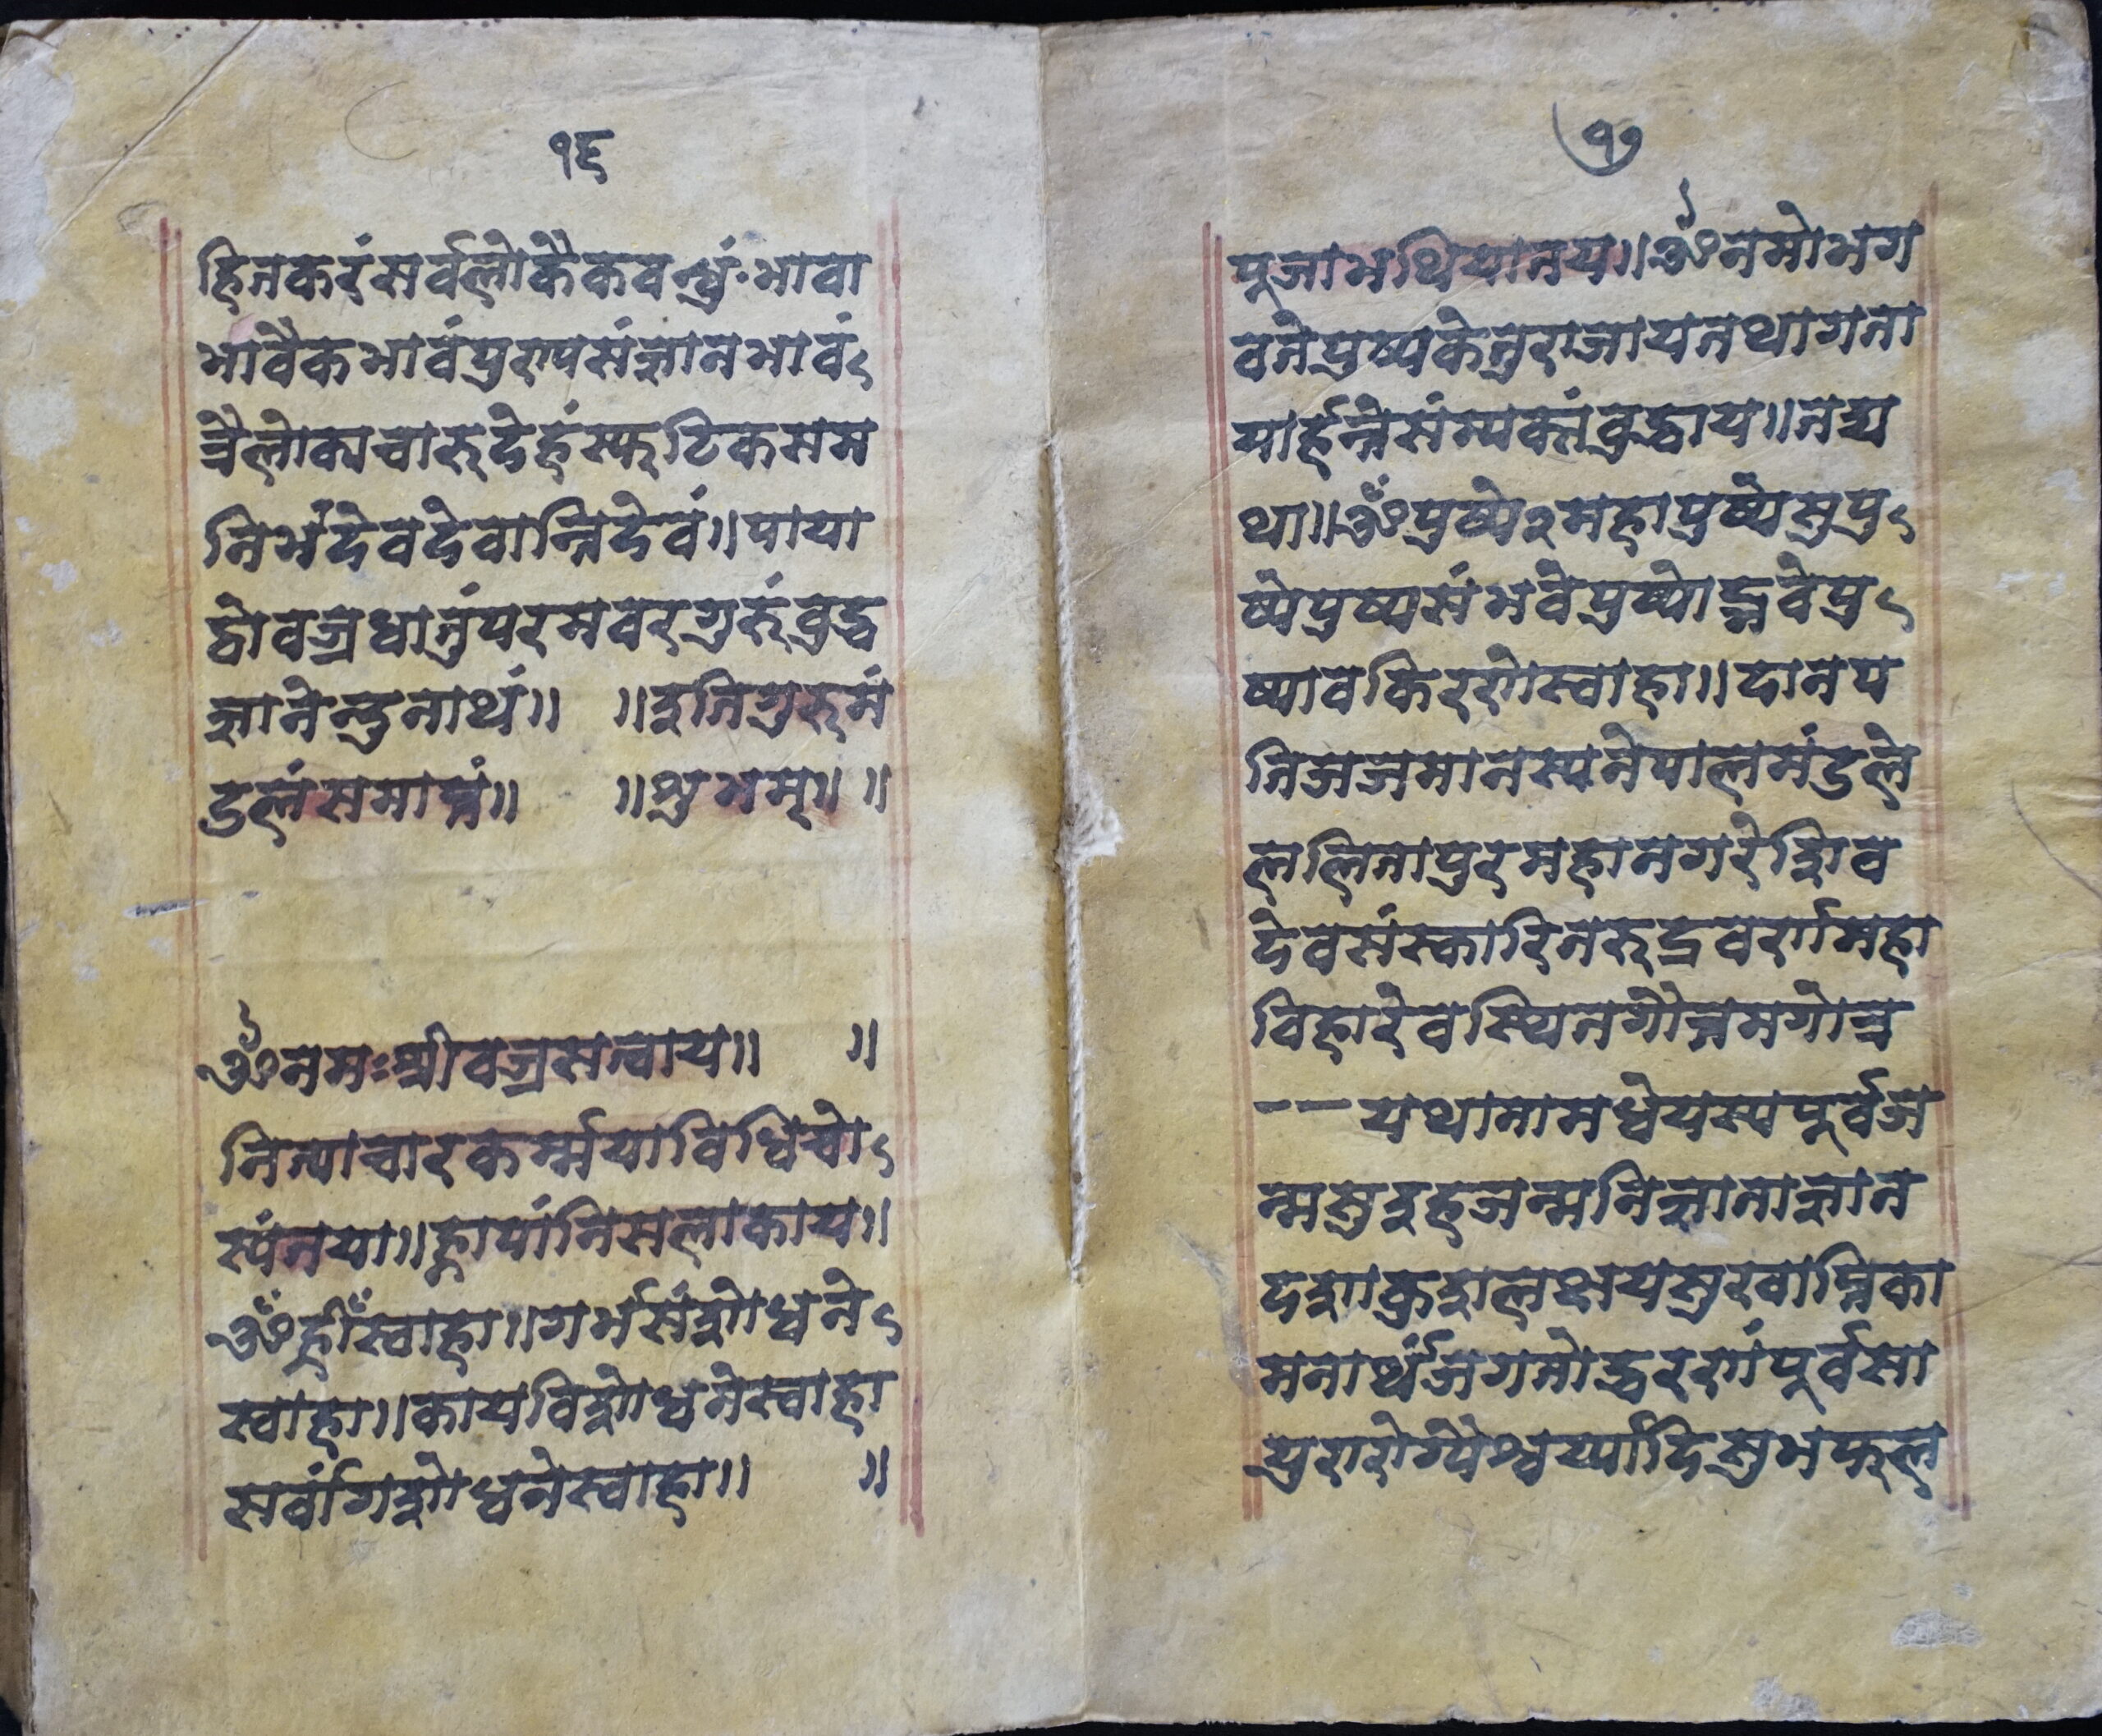 १६
हितकरंसर्वलोकैकवन्धुंभावा
भावैकभावंपुरुपसंज्ञानभावं
त्रैलोक्यचारुदेहंस्फटिकमम
निर्भंदेवदेवान्निदेवं॥पाया
द्वोवज्रधातुंपरमवरगुरुंबुद्ध
ज्ञानेन्दुनाथं॥ ॥इतिगुरुमं
डलंसमाप्तं॥ ॥शुभम्॥ ॥
ॐनमःश्रीवज्रसत्वाय॥ ॥
नित्याचारकर्म्मयाविधिचो
स्यंतया॥ह्रापांनिसलाकाय॥
ॐह्रीँस्वाहा॥गर्भसंशोधने
स्वाहा॥कायविशोधनेस्वाहा
सर्वांगशोधनेस्वाहा॥ ॥
१७
पूजाभथियातय॥ॐनमोभग
वतेपुष्पकेतुराजायतथागता
यार्हन्तेसंम्यक्संबुद्धाय॥तद्य
था॥ॐपुष्पे२महापुष्पेसुपु
ष्पेपुष्पसंभवेपुष्पोद्भवेपु
ष्पावकिरणेस्वाहा॥दानप
तिजजमानस्यनेपालमंडले
ललितापुरमहानगरेशिव
देवसंस्कारितरुद्रवर्णमहा
विहारेवस्थितगौत्तमगोत्र
--यथानामधेयस्यपूर्वज
न्मसुइहजन्मनिज्ञानाज्ञान
दशाकुशलक्षयसुखाप्तिका
मनार्थंजगतोद्धरणंपूर्वसा
युरारोग्यैश्वर्य्यादिसुभफल